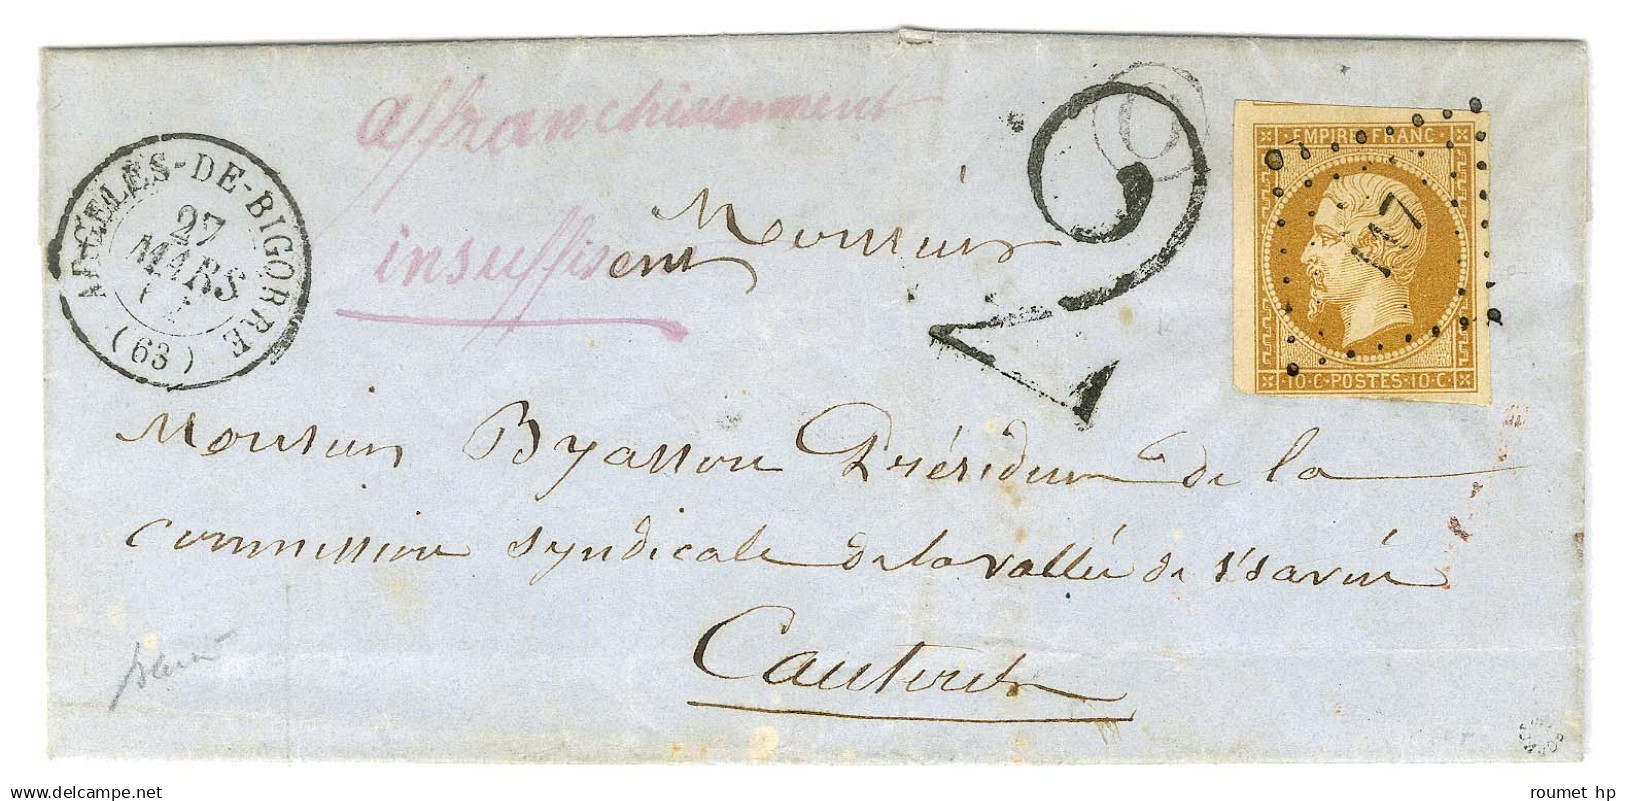 affranchissement
insuffisent
ARGELES-DE-BIGORRE
27
MARS
(63)
2
O
EMPIRE FRANC
10·C·POSTES·10·C·
Monsieur
Monsieur Byasson Président de la
commission syndicale de la vallée de St Savin
Cauteret
roumet hp